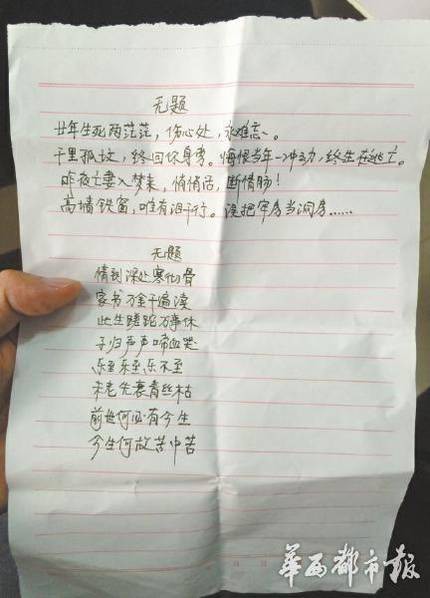 无题
廿年生死两茫茫，伤心处，永难忘。
千里孤坟，终回你身旁。悔恨当年一冲动，终生在逃亡。
昨夜亡妻入梦来，悄悄话，断情肠！
高墙铁窗，唯有泪千行。误把牢房当洞房……
无题
情到深处寒彻骨
家书万金千遍读
此生蹉跎万事休
子归声声啼血哭
乐至乐至乐不至
未老先衰青丝枯
前世何必有今生
今生何故苦中苦
華西都市报